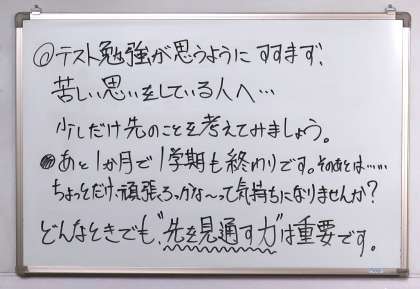 @テスト勉強が思うようにすすまず、
苦しい思いをしている人へ…
少しだけ先のことを考えてみましょう。
●あと1か月で1学期も終わりです。そのあとは……
ちょっとだけ、頑張ろっかな～って気持ちになりませんか?
どんなときでも、"先を見通す力"は重要です。